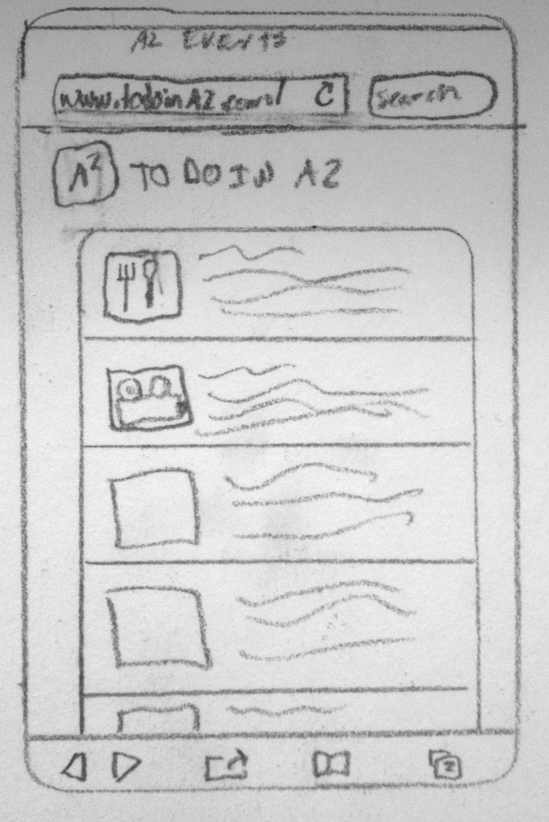 A2 EVENTS
www.todoinA2.com/ search
A² TO DO IN A2
2